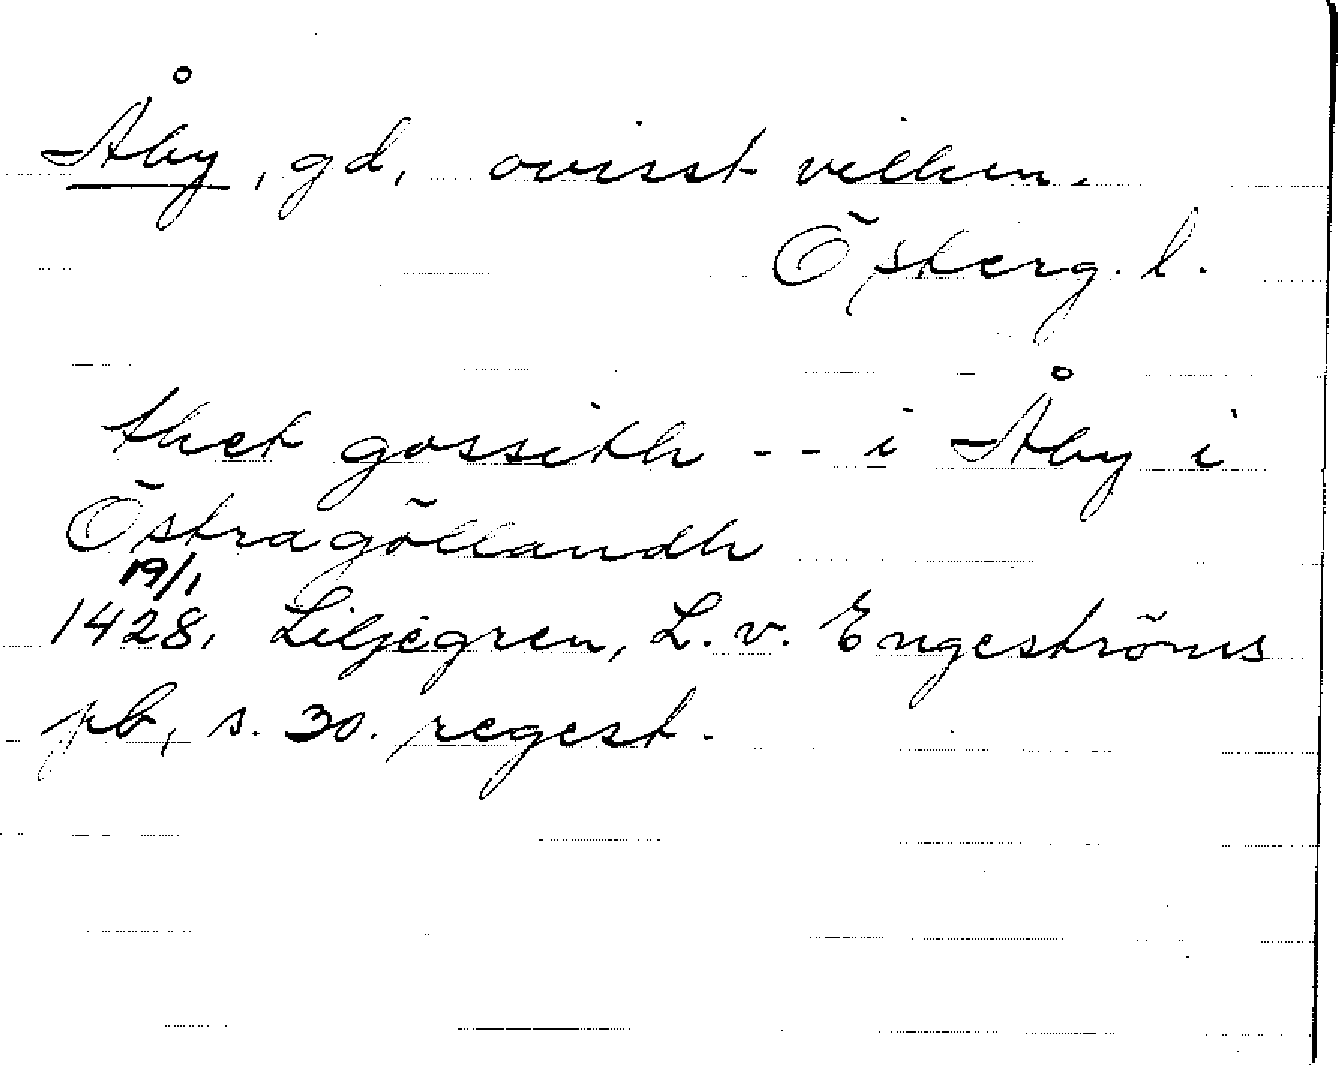 Åby, gd, ovisst vilken.
Österg. l.
thet gossith -- i Åby i
Östragöllandh
19/1
1428. Liljegren, L. v. Engeströms
pb, s. 30. regest.